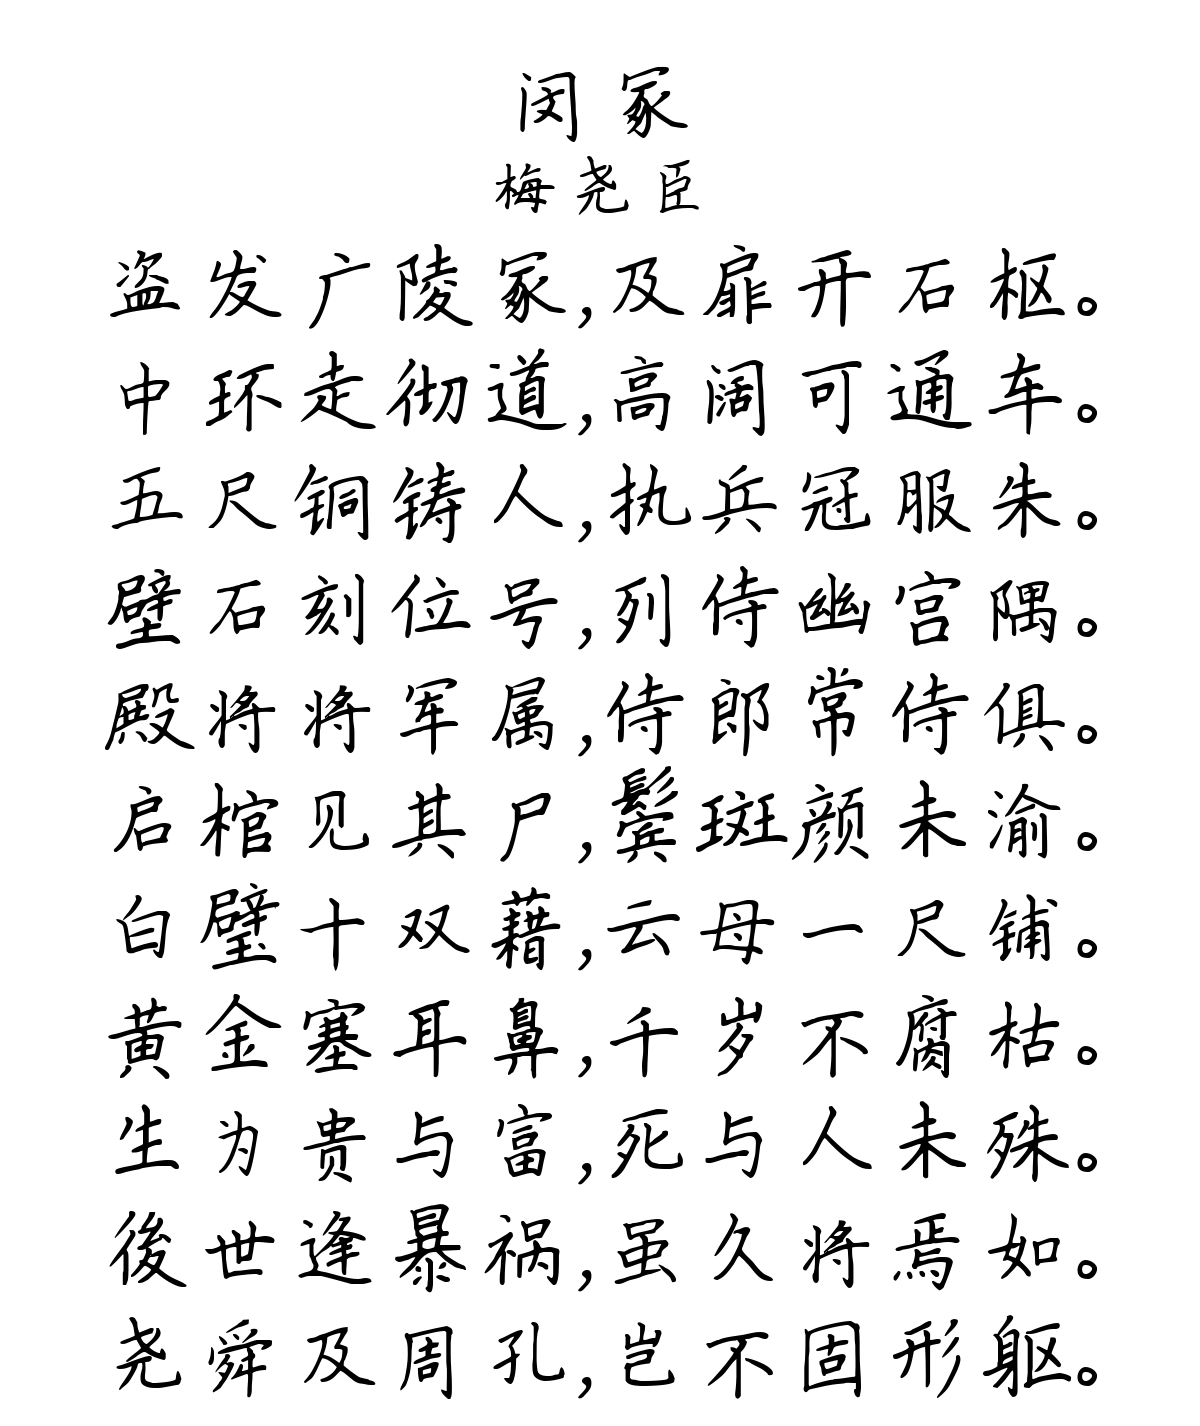 闵冢
梅尧臣
盗发广陵冢,及扉开石枢。
中环走彻道,高阔可通车。
五尺铜铸人,执兵冠服朱。
壁石刻位号,列侍幽宫隅。
殿将将军属,侍郎常侍俱。
启棺见其尸,鬓斑颜未渝。
白璧十双藉,云母一尺铺。
黄金塞耳鼻,千岁不腐枯。
生为贵与富,死与人未殊。
後世逢暴祸,虽久将焉如。
尧舜及周孔,岂不固形躯。